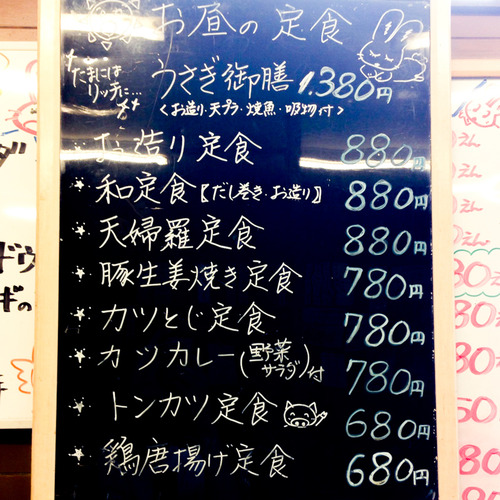 お昼の定食
たまには
リッチに…
うさぎ御膳 1,380円
〈お造り・天プラ・焼魚・吸物付〉
お造り定食 880円
和定食【だし巻き・お造り】 880円
天婦羅定食 880円
豚生姜焼き定食 780円
カツとじ定食 780円
カツカレー(野菜サラダ)付 780円
トンカツ定食 680円
鶏唐揚げ定食 680円